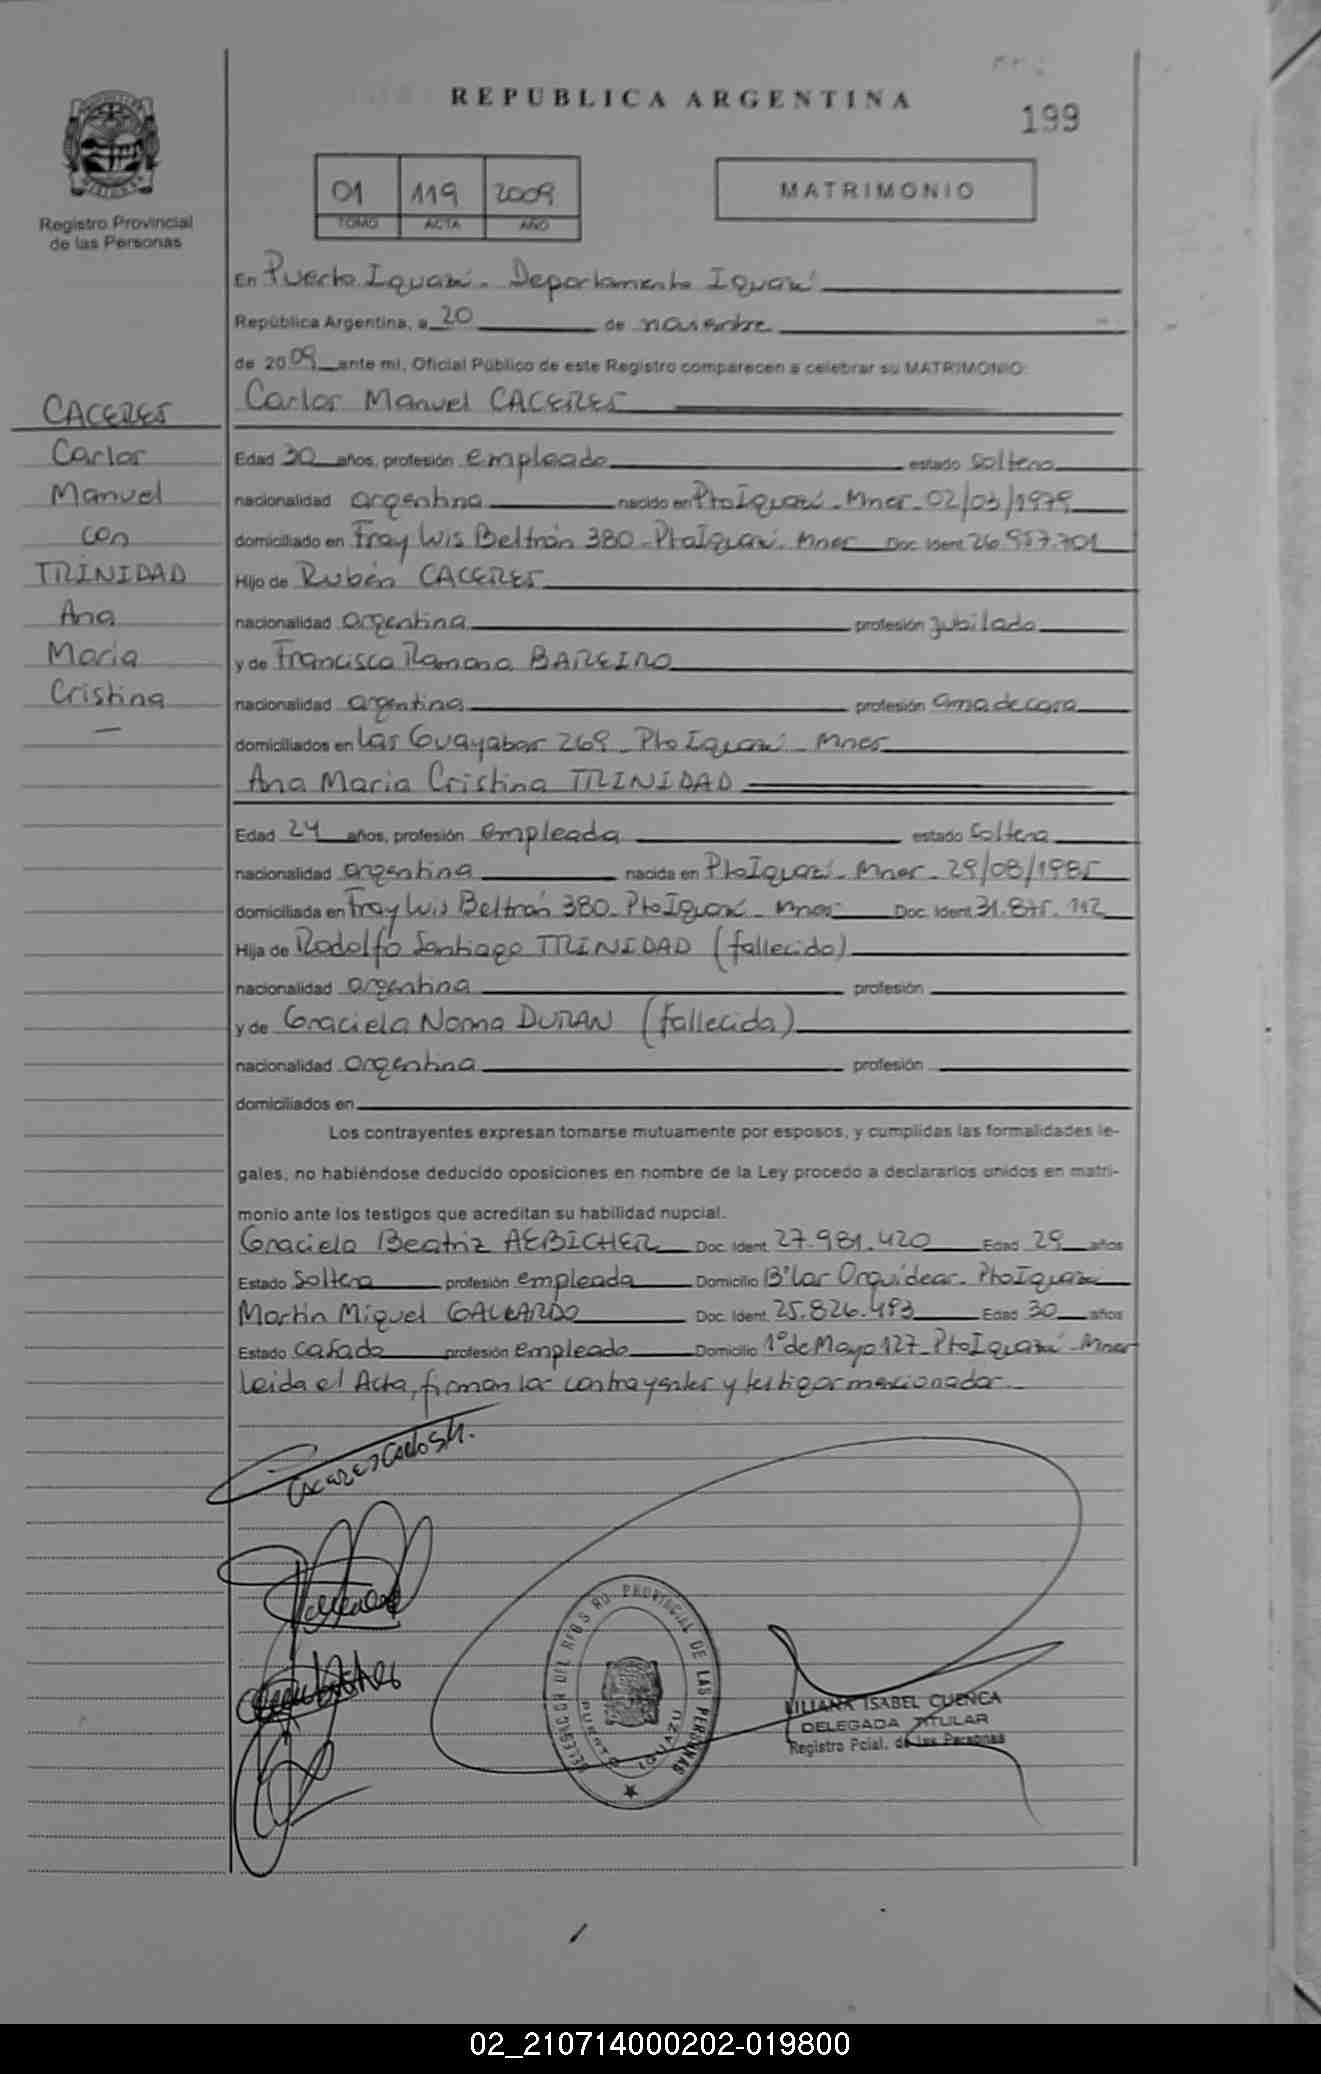 REPUBLICA ARGENTINA
199
01 119 2009
TOMO ACTA AÑO
MATRIMONIO
Registro Provincial
de las Personas
En Puerto Iguazú. Departamento Iguazú
República Argentina, a 20 de noviembre
de 2009 ante mi, Oficial Público de este Registro comparecen a celebrar su MATRIMONIO:
CACERES
Carlos
Manuel
con
TRINIDAD
Ana
Maria
Cristina
Carlos Manuel CACERES
Edad 30 años, profesión empleado estado soltero
nacionalidad argentina nacido en Pto Iguazú - Mnes - 02/03/1979
domiciliado en Fray Luis Beltrán 380 - Pto Iguazú - Mnes Doc. Ident 26.957.701
Hijo de Rubén CACERES
nacionalidad argentina profesión jubilado
y de Francisca Ramona BAREIRO
nacionalidad argentina profesión ama de casa
domiciliados en Las Guayabas 269 - Pto Iguazú - Mnes
Ana Maria Cristina TRINIDAD
Edad 24 años, profesión empleada estado soltera
nacionalidad argentina nacida en Pto Iguazú - Mnes - 29/08/1985
domiciliada en Fray Luis Beltrán 380 - Pto Iguazú - Mnes Doc. Ident 31.875.112
Hija de Rodolfo Santiago TRINIDAD (fallecido)
nacionalidad argentina profesión
y de Graciela Norma DURAN (fallecida)
nacionalidad argentina profesión
domiciliados en
Los contrayentes expresan tomarse mutuamente por esposos, y cumplidas las formalidades le-
gales, no habiéndose deducido oposiciones en nombre de la Ley procedo a declararlos unidos en matri-
monio ante los testigos que acreditan su habilidad nupcial.
Graciela Beatriz AEBICHER Doc. Ident. 27.981.420 Edad 29 años
Estado Soltera profesión empleada Domicilio B° Las Orquídeas - Pto Iguazú
Martín Miguel GALLARDO Doc. Ident. 25.826.493 Edad 30 años
Estado casado profesión empleado Domicilio 1° de Mayo 127 - Pto Iguazú - Mnes
Leida el Acta, firman los contrayentes y testigos mencionados.
Caceres Carlos M.
DELEGACION DEL REGISTRO PROVINCIAL DE LAS PERSONAS
PUERTO IGUAZU
LILIANA ISABEL CUENCA
DELEGADA TITULAR
Registro Pcial. de las Personas
02_210714000202-019800